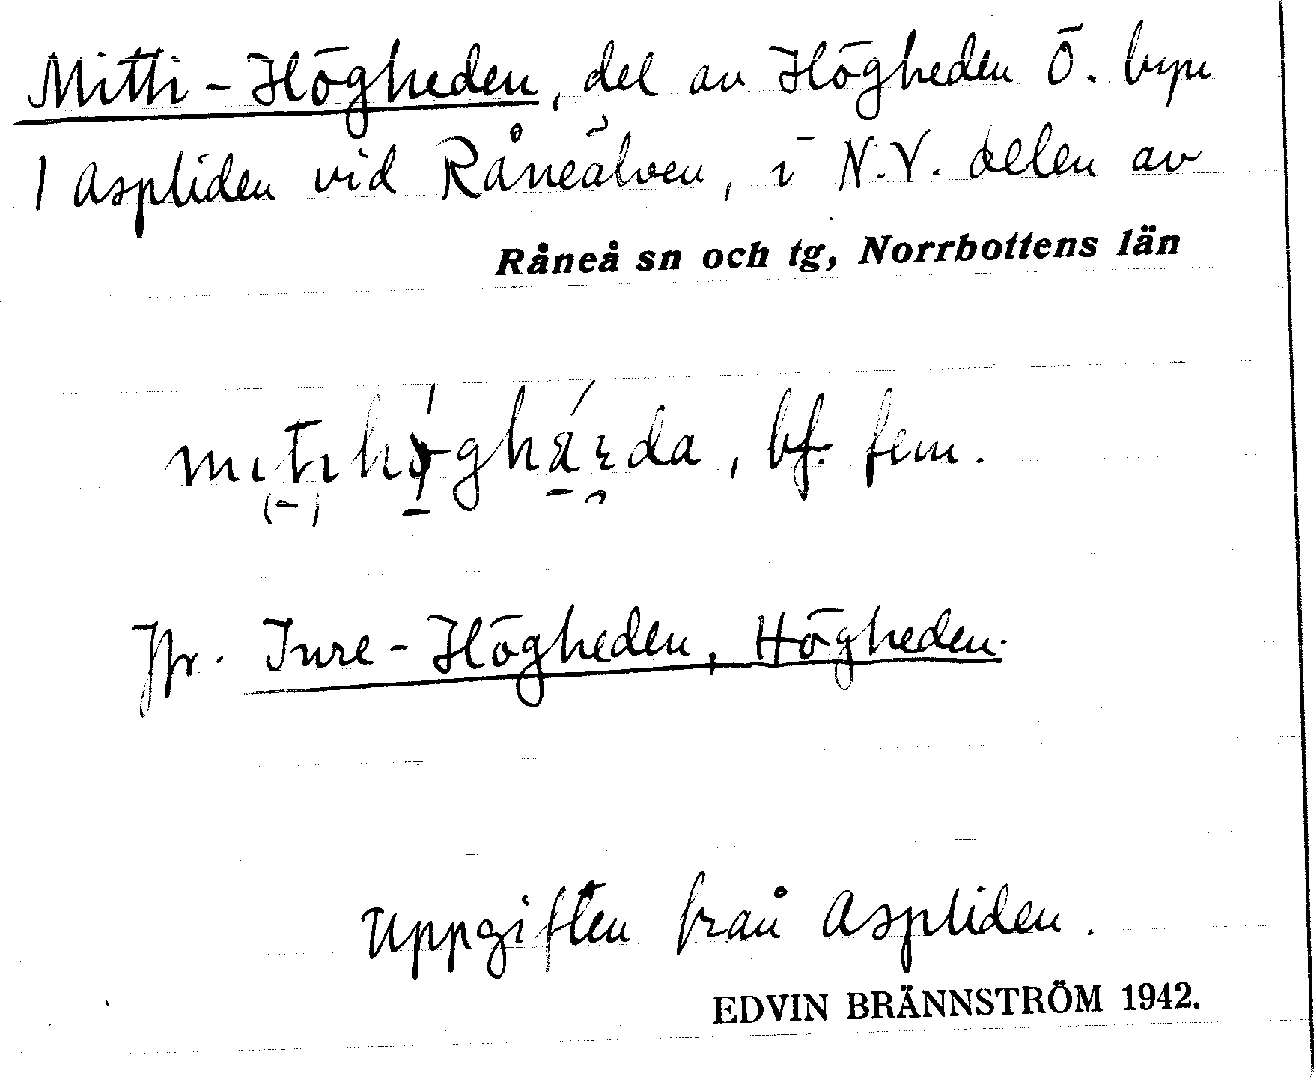 Mitti-Högheden, del av Högheden Ö. byn
/ Aspliden vid Råneälven, i N.V. delen av
Råneå sn och tg, Norrbottens län
bf. fem.
Jfr. Inre-Högheden, Högheden.
Uppgiften från Aspliden.
EDVIN BRÄNNSTRÖM 1942.